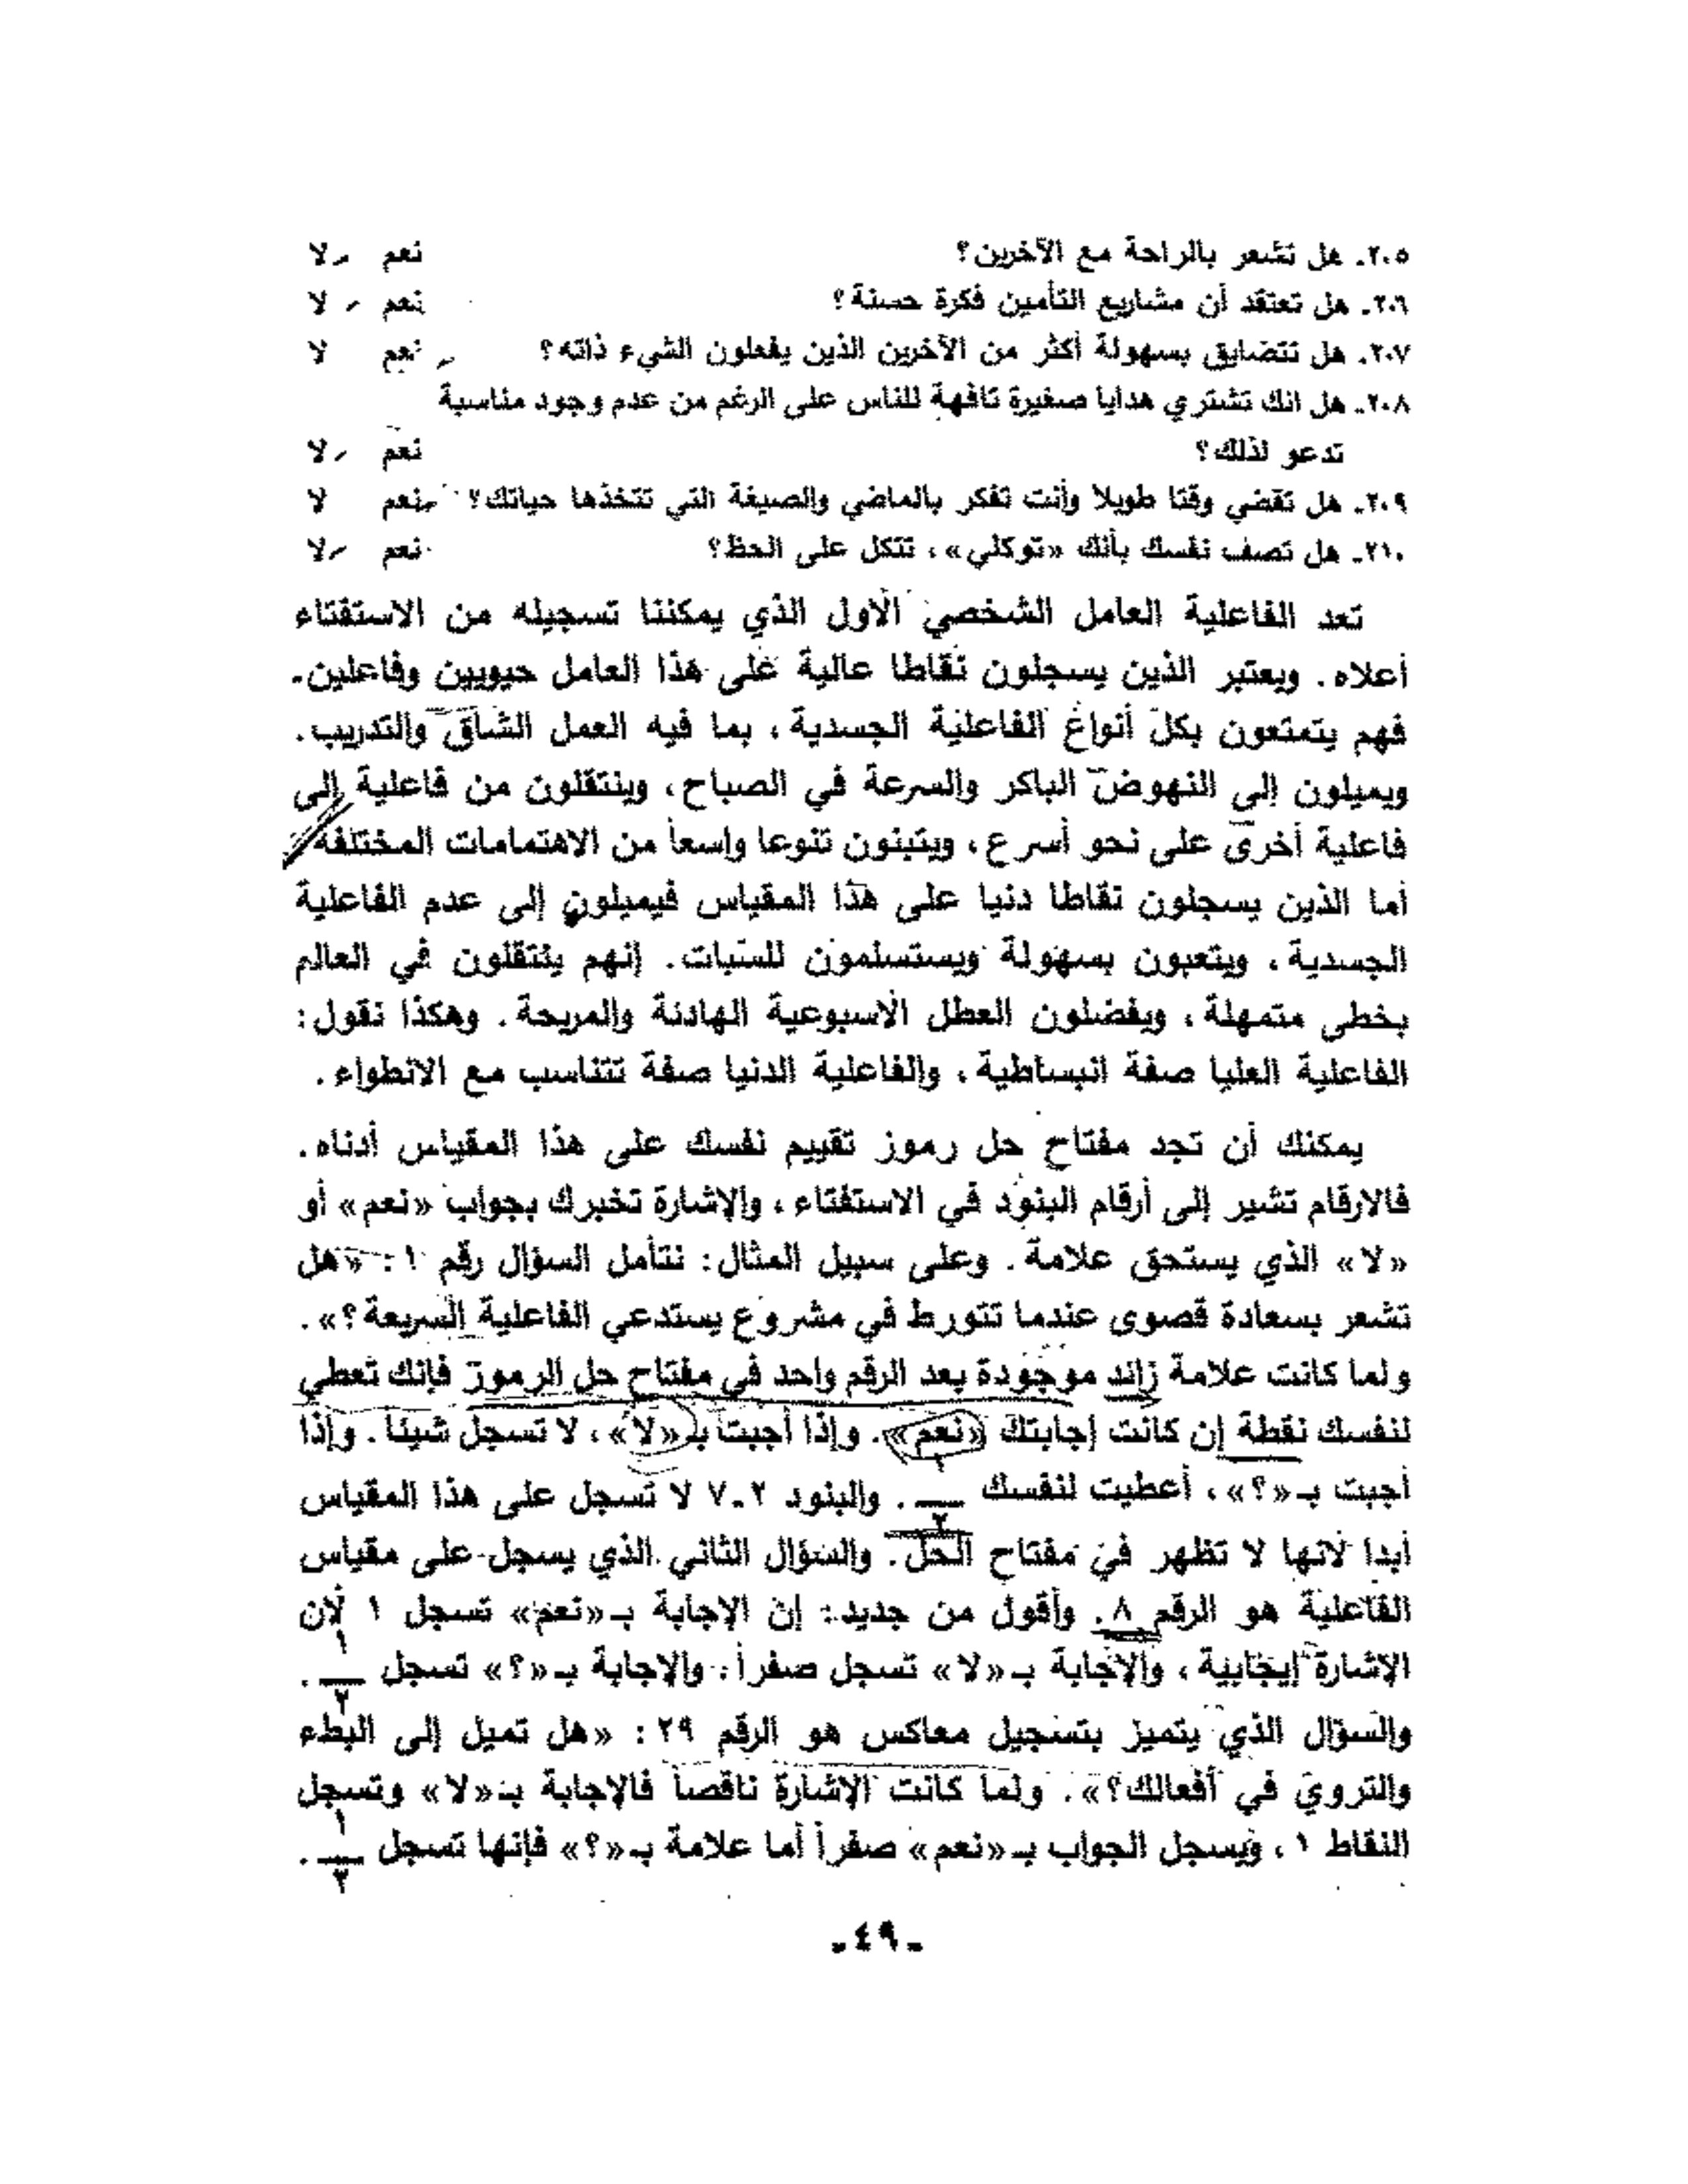 ٢٠٥ـ هل تشعر بالراحة مع الآخرين؟ نعم لا
٢٠٦ـ هل تعتقد أن مشاريع التأمين فكرة حسنة؟ نعم لا
٢٠٧ـ هل تتضايق بسهولة أكثر من الآخرين الذين يفعلون الشيء ذاته؟ نعم لا
٢٠٨ـ هل انك تشتري هدايا صغيرة تافهة للناس على الرغم من عدم وجود مناسبة
تدعو لذلك؟ نعم لا
٢٠٩ـ هل تقضي وقتا طويلا وأنت تفكر بالماضي والصيغة التي تتخذها حياتك؟ نعم لا
٢١٠ـ هل تصف نفسك بأنك «توكلي»، تتكل على الحظ؟ نعم لا
تعد الفاعلية العامل الشخصي الأول الذي يمكننا تسجيله من الاستفتاء
أعلاه. ويعتبر الذين يسجلون نقاطا عالية على هذا العامل حيويين وفاعلين.
فهم يتمتعون بكل أنواع الفاعلية الجسدية، بما فيه العمل الشاق والتدريب.
ويميلون إلى النهوض الباكر والسرعة في الصباح، وينتقلون من فاعلية إلى
فاعلية أخرى على نحو أسرع، ويتبنون تنوعا واسعاً من الاهتمامات المختلفة
أما الذين يسجلون نقاطا دنيا على هذا المقياس فيميلون إلى عدم الفاعلية
الجسدية، ويتعبون بسهولة ويستسلمون للسبات. إنهم ينتقلون في العالم
بخطى متمهلة، ويفضلون العطل الأسبوعية الهادئة والمريحة. وهكذا نقول:
الفاعلية العليا صفة انبساطية، والفاعلية الدنيا صفة تتناسب مع الانطواء.
يمكنك أن تجد مفتاح حل رموز تقييم نفسك على هذا المقياس أدناه.
فالارقام تشير إلى أرقام البنود في الاستفتاء، والإشارة تخبرك بجواب «نعم» أو
«لا» الذي يستحق علامة. وعلى سبيل المثال: نتأمل السؤال رقم ١: «هل
تشعر بسعادة قصوى عندما تتورط في مشروع يستدعي الفاعلية السريعة؟».
ولما كانت علامة زائد موجودة بعد الرقم واحد في مفتاح حل الرموز فإنك تعطي
لنفسك نقطة إن كانت إجابتك «نعم». وإذا أجبت بـ«لا»، لا تسجل شيئا. وإذا
أجبت بـ«؟»، أعطيت لنفسك ١/٢. والبنود ٢ـ٧ لا تسجل على هذا المقياس
أبدا لأنها لا تظهر في مفتاح الحل. والسؤال الثاني الذي يسجل على مقياس
الفاعلية هو الرقم ٨. وأقول من جديد: إن الإجابة بـ«نعم» تسجل ١ لأن
الإشارة إيجابية، والإجابة بـ«لا» تسجل صفراً، والإجابة بـ«؟» تسجل ١/٢.
والسؤال الذي يتميز بتسجيل معاكس هو الرقم ٢٩: «هل تميل إلى البطء
والتروي في أفعالك؟». ولما كانت الإشارة ناقصاً فالإجابة بـ«لا» وتسجل
النقاط ١، ويسجل الجواب بـ«نعم» صفراً أما علامة بـ«؟» فإنها تسجل ١/٢.
ـ٤٩ـ